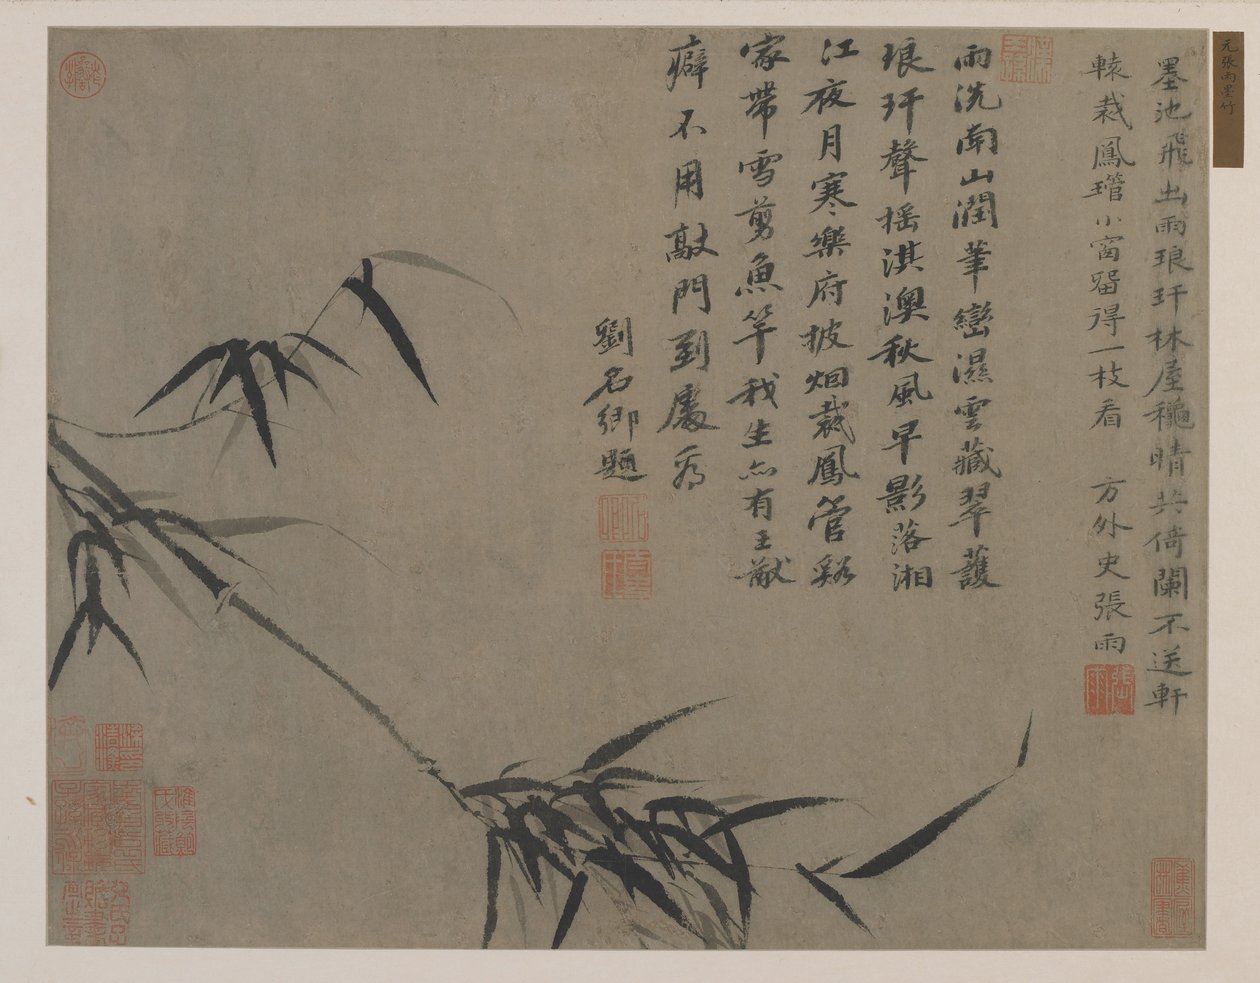 元張雨墨竹
墨池飛出雨琅玕林屋穐晴共倚闌不送軒
轅裁鳳琯小窗留得一枝看　方外史張雨
張雨
雨洗南山潤華巒濕雲藏翠護
琅玕聲搖淇澳秋風早影落湘
江夜月寒樂府披烟裁鳳管谿
家帶雪剪魚竿我生亦有王猷
癖不用敲門到處看
劉名卿題